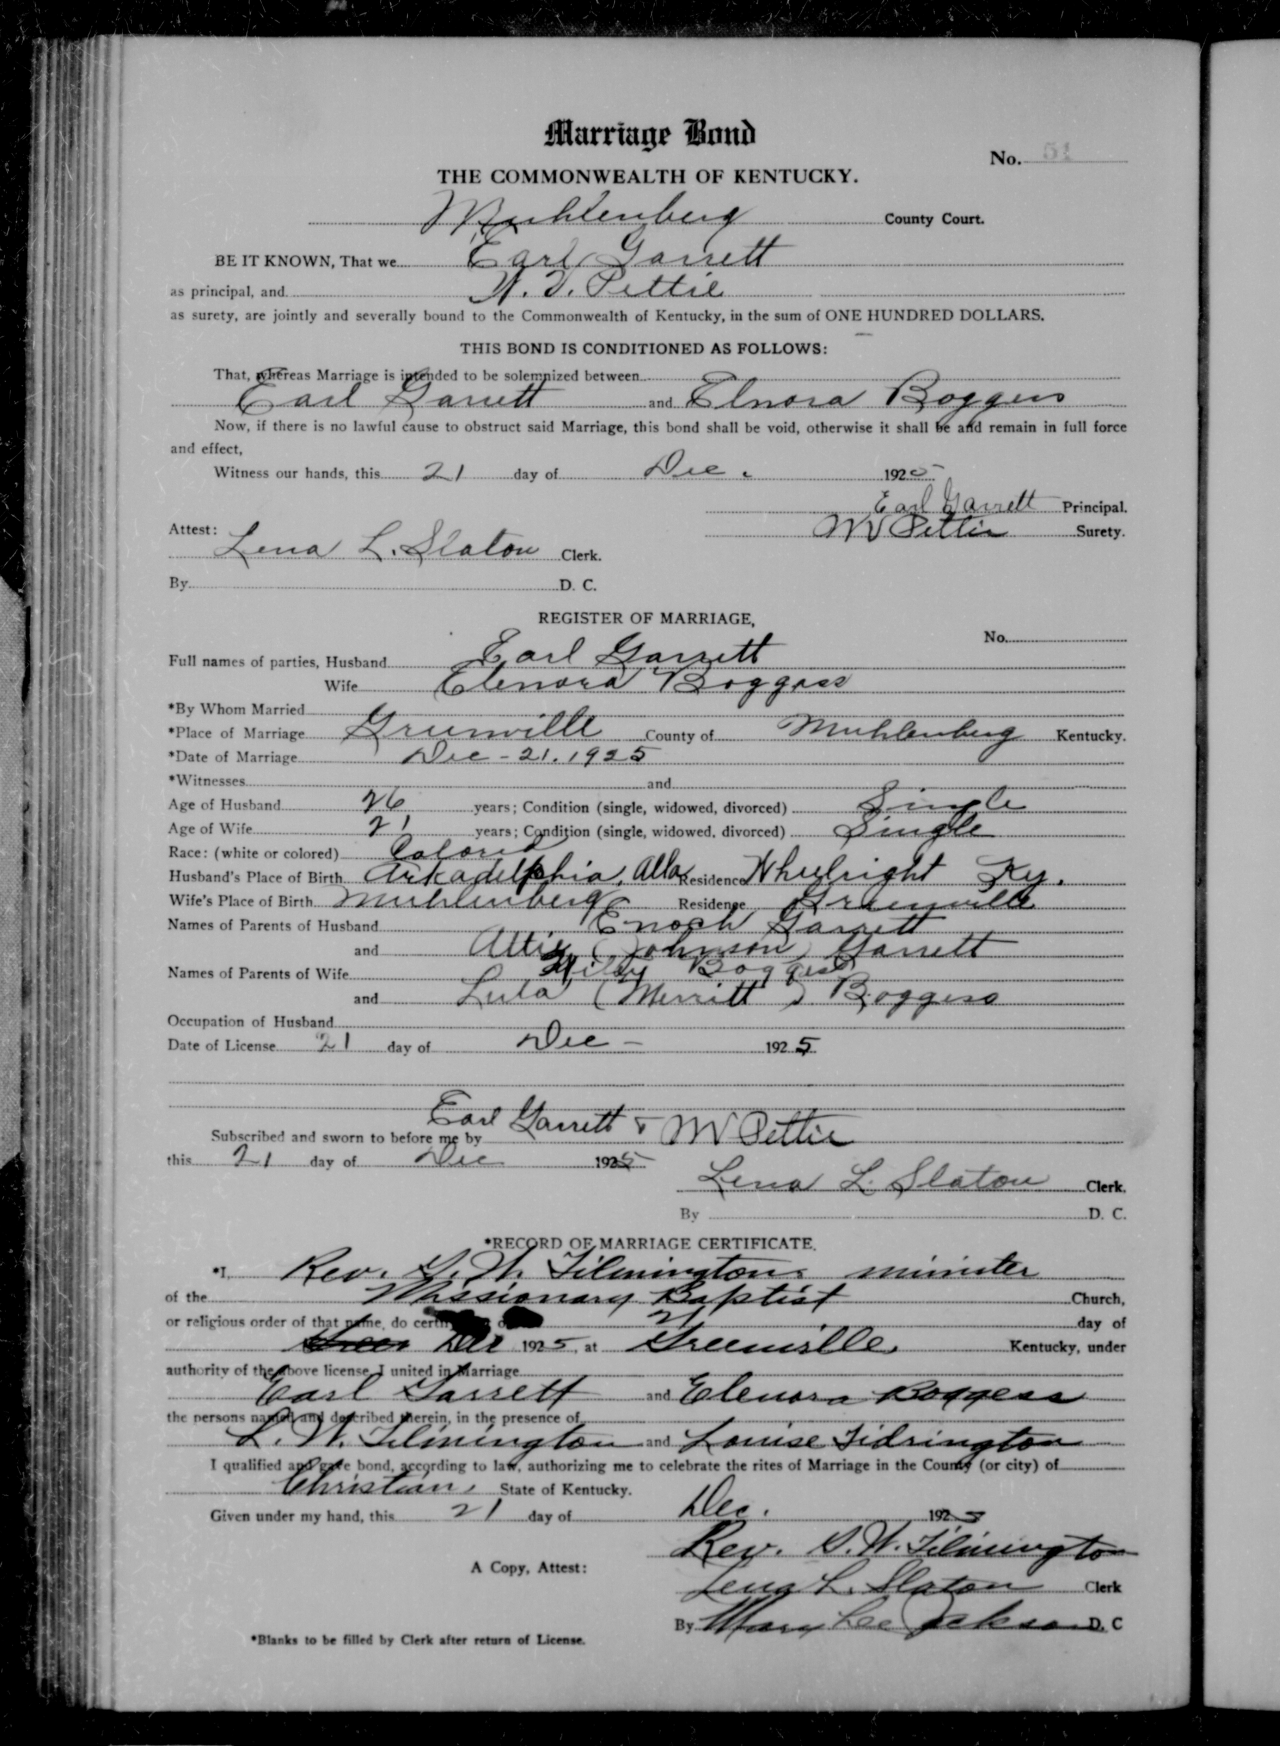 Marriage Bond
No. 51
THE COMMONWEALTH OF KENTUCKY.
Muhlenberg County Court.
BE IT KNOWN, That we Earl Garrett
as principal, and W. V. Pettie
as surety, are jointly and severally bound to the Commonwealth of Kentucky, in the sum of ONE HUNDRED DOLLARS.
THIS BOND IS CONDITIONED AS FOLLOWS:
That, whereas Marriage is intended to be solemnized between
Earl Garrett and Elnora Boggess
Now, if there is no lawful cause to obstruct said Marriage, this bond shall be void, otherwise it shall be and remain in full force
and effect,
Witness our hands, this 21 day of Dec. 1925
Earl Garrett Principal.
W V Pettie Surety.
Attest:
Lena L. Slaton Clerk.
By D. C.
REGISTER OF MARRIAGE,
No.
Full names of parties, Husband Earl Garrett
Wife Elenora Boggess
*By Whom Married
*Place of Marriage Greenville County of Muhlenberg Kentucky.
*Date of Marriage Dec - 21. 1925
*Witnesses and
Age of Husband 26 years; Condition (single, widowed, divorced) Single
Age of Wife 21 years; Condition (single, widowed, divorced) Single
Race: (white or colored) Colored
Husband's Place of Birth Arkadelphia, Alla Residence Wheelright Ky.
Wife's Place of Birth Muhlenberg Residence Greenville
Names of Parents of Husband Enoch Garrett
and Attie (Johnson) Garrett
Names of Parents of Wife Boggess
and Lula (Merritt) Boggess
Occupation of Husband
Date of License 21 day of Dec - 1925
Subscribed and sworn to before me by Earl Garrett & W V Pettie
this 21 day of Dec 1925
Lena L. Slaton Clerk.
By D. C.
*RECORD OF MARRIAGE CERTIFICATE.
*I, Rev. S. W. Tilmington minister
of the Missionary Baptist Church,
or religious order of that name, do certify 21 day of
Dec 1925, at Greenville, Kentucky, under
authority of the above license I united in Marriage
Earl Garrett and Elenora Boggess
the persons named and described therein, in the presence of
L. W. Tilmington and Louise
I qualified and gave bond, according to law, authorizing me to celebrate the rites of Marriage in the County (or city) of
Christian, State of Kentucky.
Given under my hand, this 21 day of Dec. 1925
Rev. S. W. Tilmington
A Copy, Attest:
Lena L. Slaton Clerk
By Mary Lee Jackson D. C
*Blanks to be filled by Clerk after return of License.